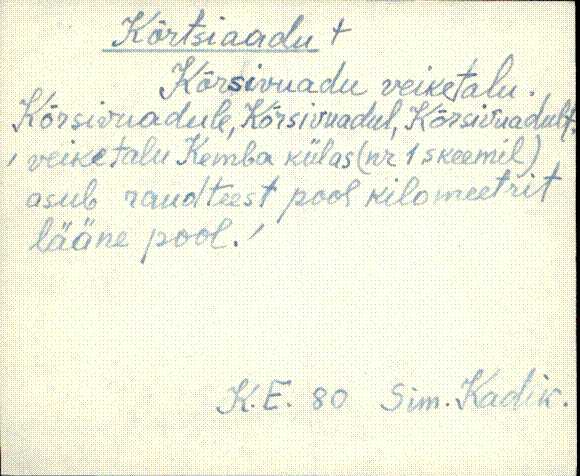 Kõrtsiaadu +
Kõrsivuadu veiketalu.
Kõrsivuadule, Kõrsivuadul, Kõrsivuadult.
' veiketalu Kemba külas (nr 1 skeemil)
asub raudteest pool kilomeetrit
lääne pool.'
K.E. 80 Sim. Kadik.